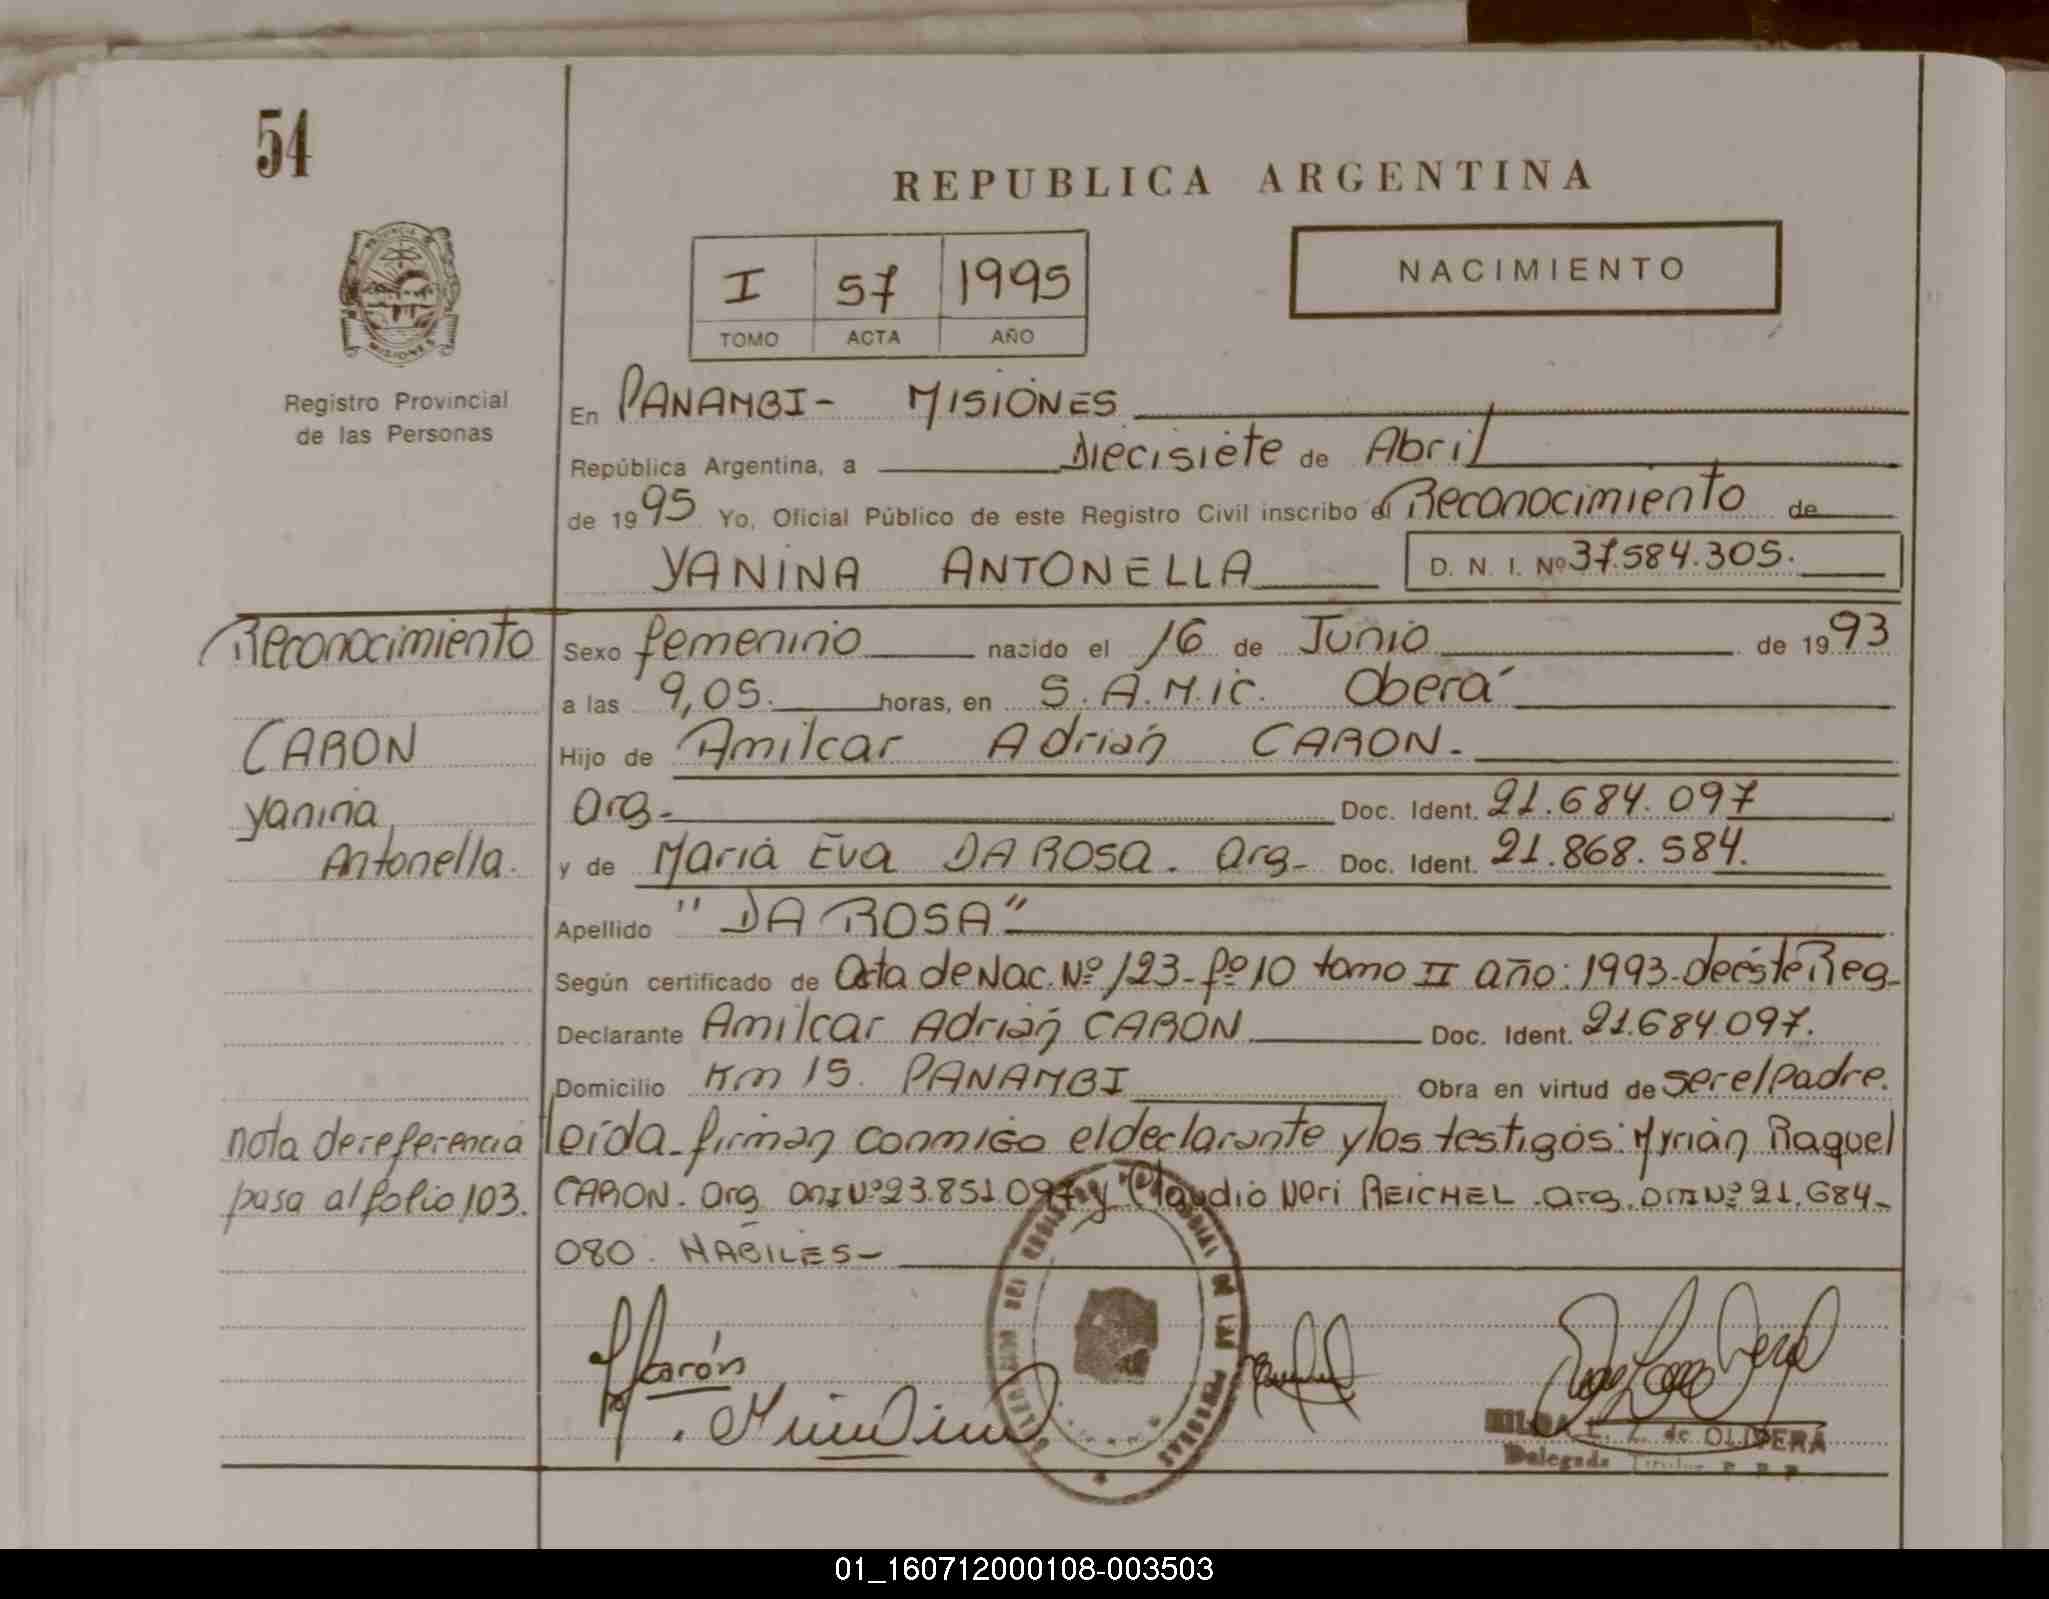 54
REPUBLICA ARGENTINA
PROVINCIA DE
MISIONES
I 57 1995
TOMO ACTA AÑO
NACIMIENTO
Registro Provincial
de las Personas
En PANAMBI- MISIONES
República Argentina, a Diecisiete de Abril
de 1995 Yo, Oficial Público de este Registro Civil inscribo el Reconocimiento de
YANINA ANTONELLA
D. N. I. Nº 37.584.305.
Reconocimiento
CARON
Yanina
Antonella.
Sexo femenino nacido el 16 de Junio de 1993
a las 9,05. horas, en S.A.M.ic. Oberá
Hijo de Amilcar Adrián CARON.
Arg- Doc. Ident. 21.684.097
y de María Eva DA ROSA. Arg- Doc. Ident. 21.868.584.
Apellido "DA ROSA"
Según certificado de Acta de Nac. Nº 123-fº 10 tomo II año: 1993-de éste Reg-
Declarante Amilcar Adrián CARON Doc. Ident. 21.684.097.
Domicilio Km 15. PANAMBI Obra en virtud de ser el padre.
nota de referencia
pasa al folio 103.
leída-firman conmigo el declarante y los testigos: Myrian Raquel
CARON. Arg DNI Nº 23.851.097 y Claudio Neri REICHEL. Arg. DNI Nº 21.684-
080. HABILES-
Carón
DE LAS PERSONAS
HILDA L. Z. de OLIVERA
Delegada Titular R. P. P.
01_160712000108-003503